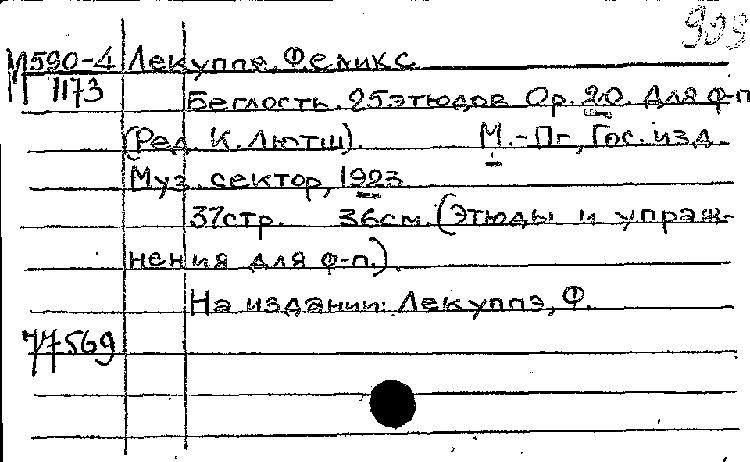 909
М590-4 Лекуппэ, Феликс.
1173
Беглость. 25 этюдов Op. 20. Для ф-п
(Ред. К. Лютш). М.-Пг, Гос. изд.
Муз. сектор, 1923
37стр. 36см. (Этюды и упраж-
нения для ф-п.)
На издании: Лекуппэ, Ф.
77569